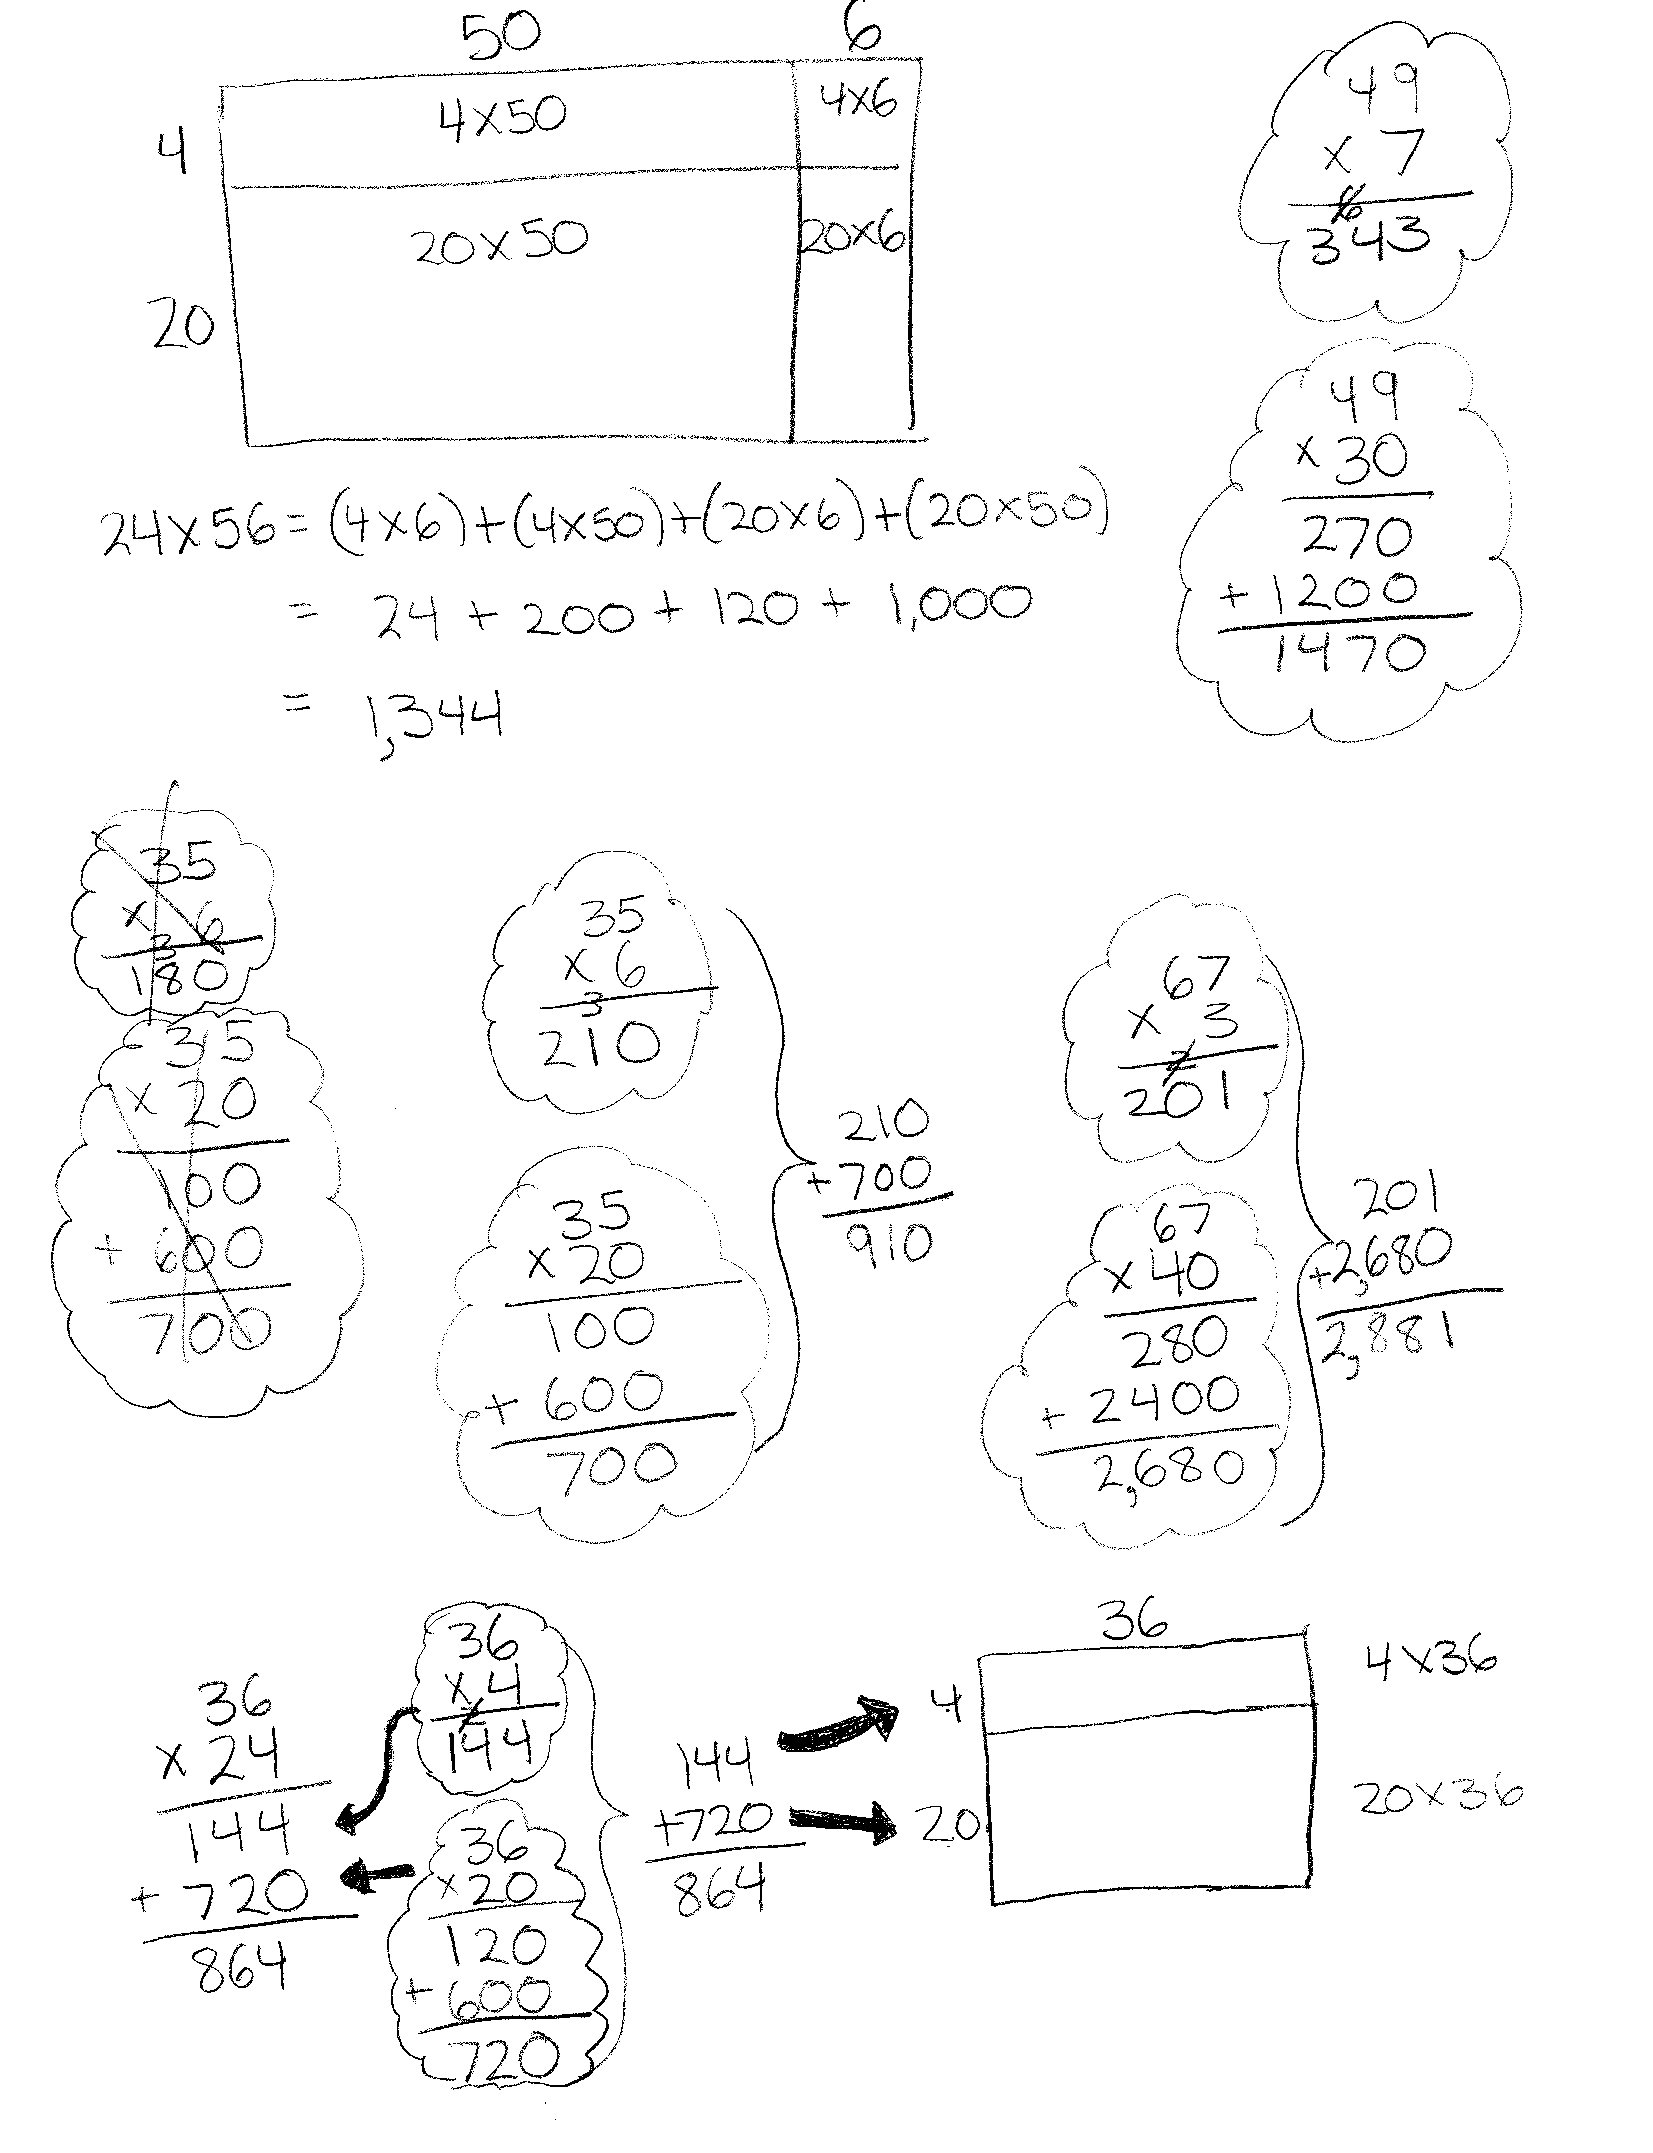 50 6
4 4x50 4x6
20 20x50 20x6
24x56=(4x6)+(4x50)+(20x6)+(20x50)
= 24 + 200 + 120 + 1,000
= 1,344
49
x 7
6
343
49
x 30
270
+ 1200
1470
35
x 6
3
180
35
x 20
100
+ 600
700
35
x 6
3
210
35
x 20
100
+ 600
700
210
+700
910
67
x 3
2
201
67
x 40
280
+ 2400
2,680
201
+2,680
2,881
36
x 24
144
+ 720
864
36
x 4
2
144
36
x20
120
+ 600
720
144
+720
864
36
4 4x36
20 20x36